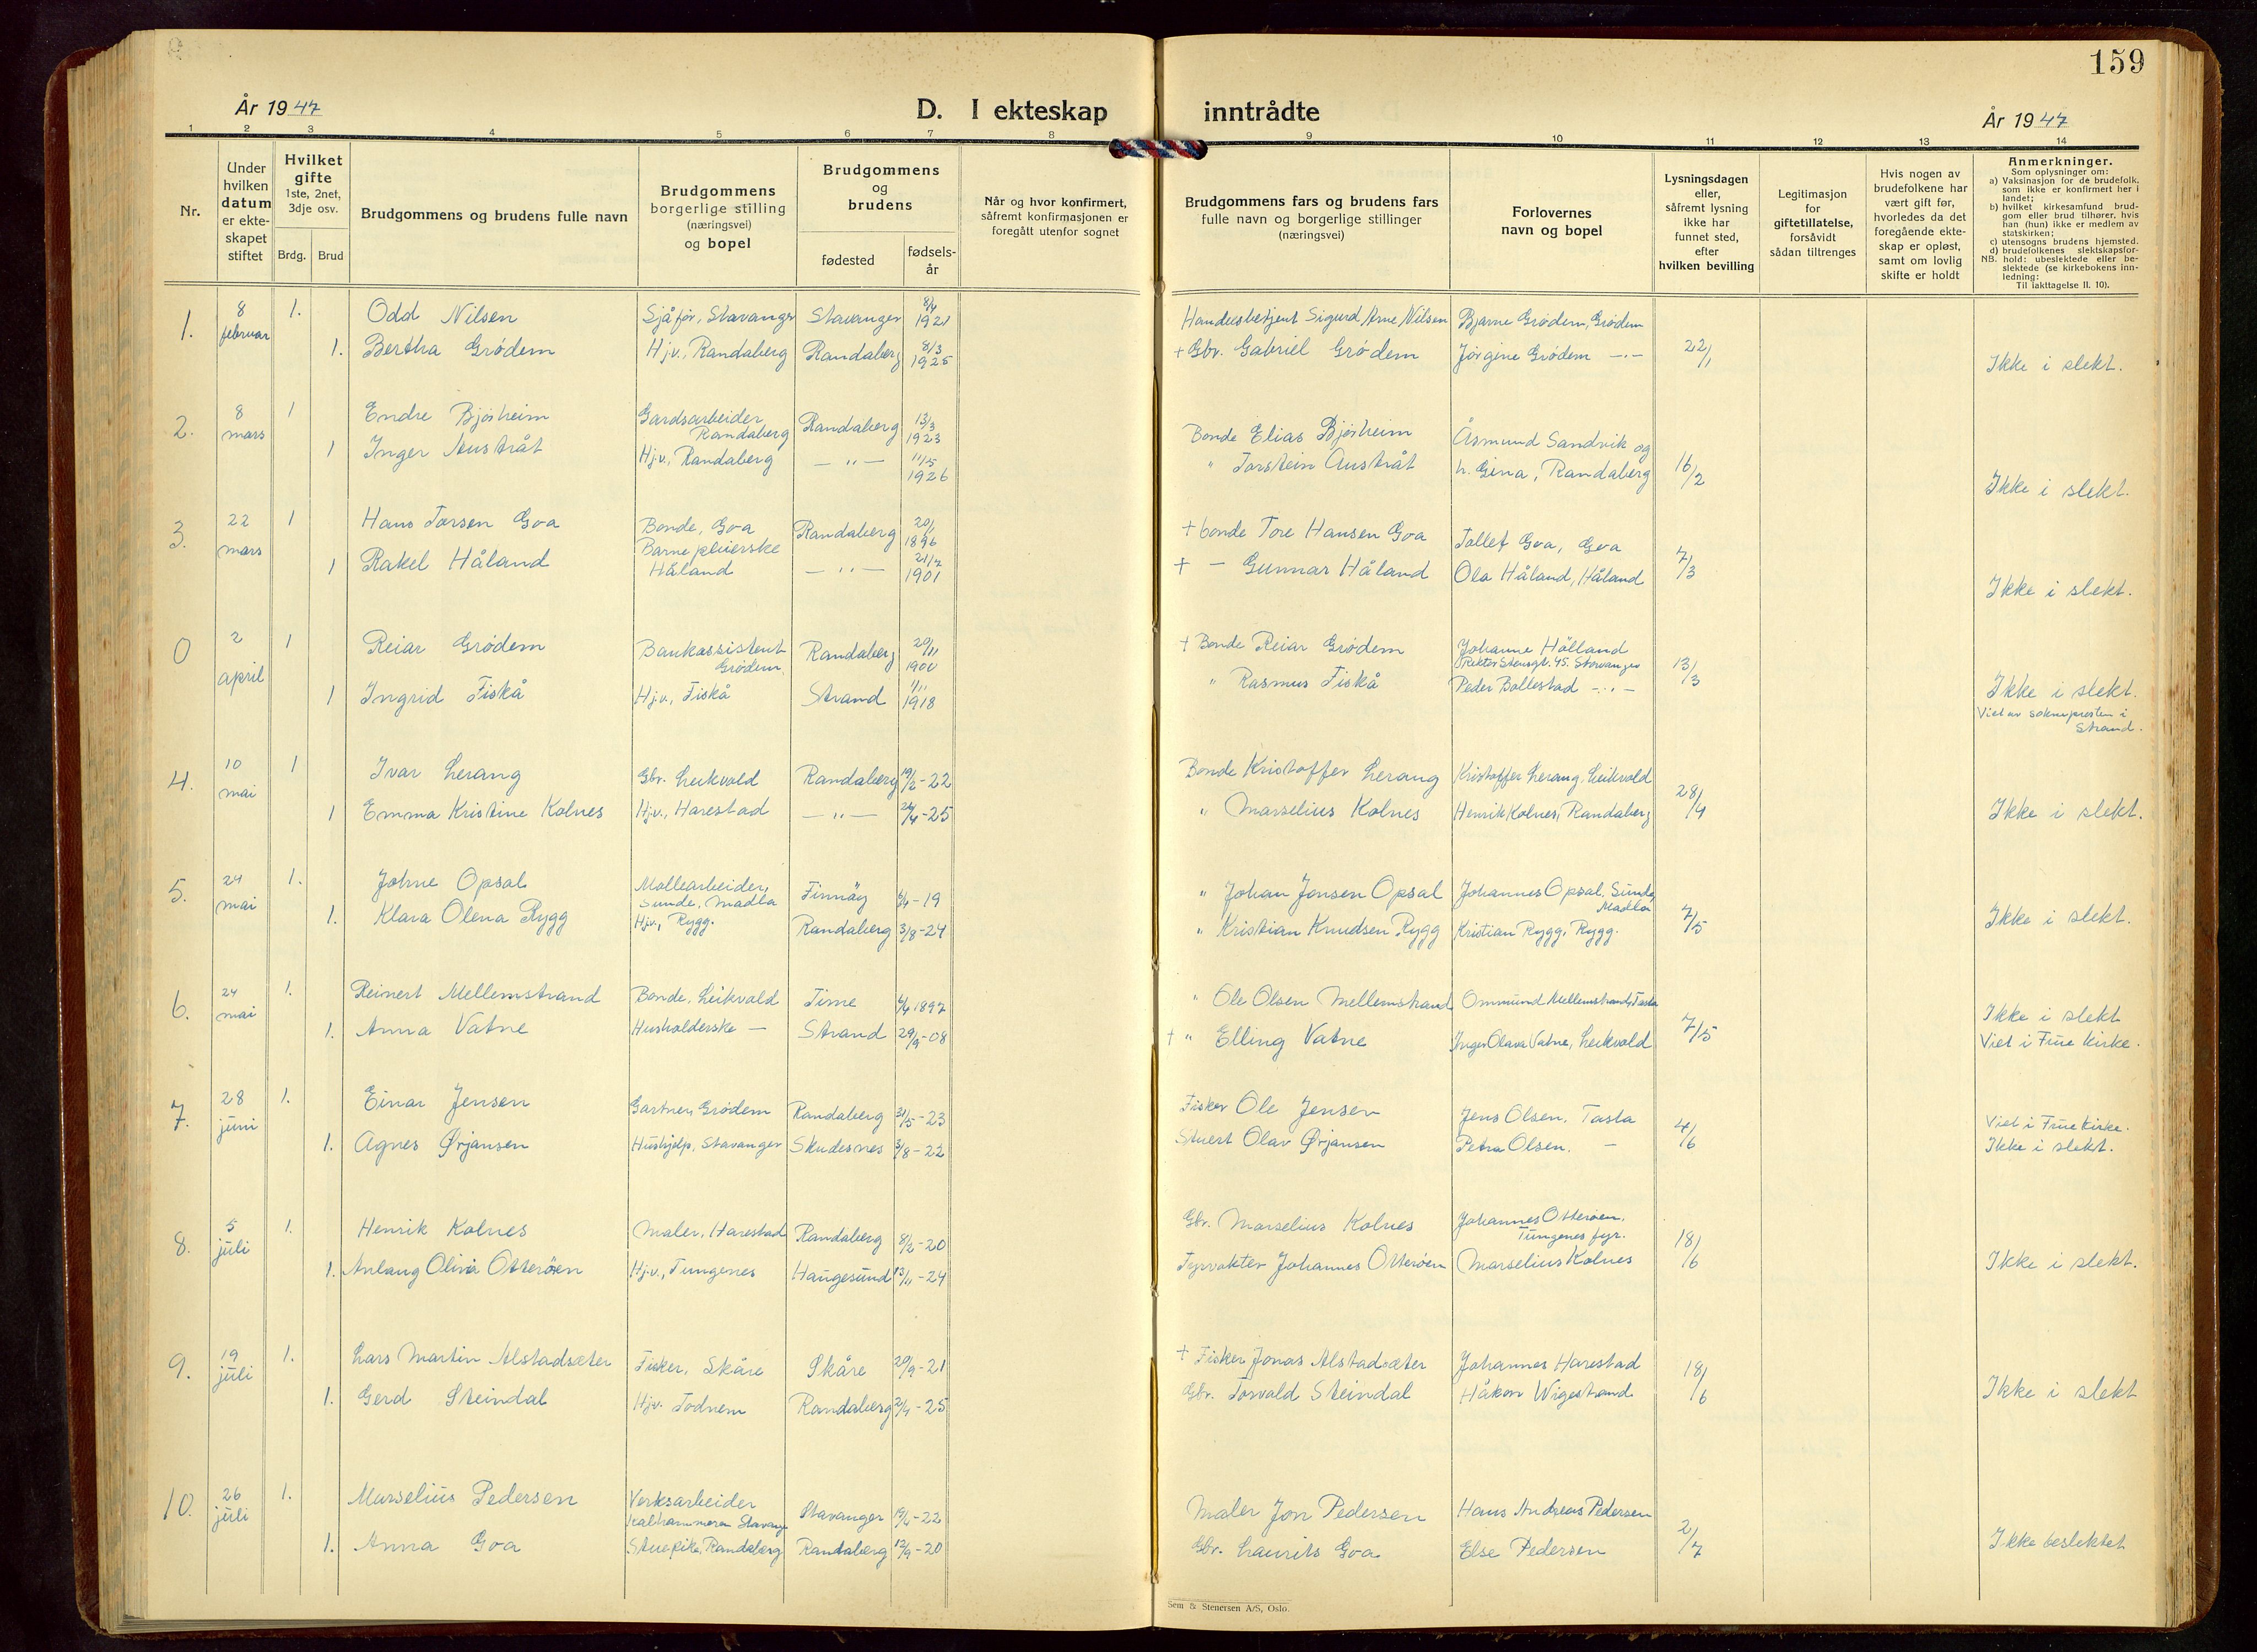 159
År 1947
D. I ekteskap inntrådte
År 1947
1 2 3 4 5 6 7 8 9 10 11 12 13 14
Nr.
Under
hvilken
datum
er ekte-
skapet
stiftet
Hvilket
gifte
1ste, 2net,
3dje osv.
Brdg. Brud
Brudgommens og brudens fulle navn
Brudgommens
borgerlige stilling
(næringsvei)
og bopel
Brudgommens
og
brudens
fødested
fødsels-
år
Når og hvor konfirmert,
såfremt konfirmasjonen er
foregått utenfor sognet
Brudgommens fars og brudens fars
fulle navn og borgerlige stillinger
(næringsvei)
Forlovernes
navn og bopel
Lysningsdagen
eller,
såfremt lysning
ikke har
funnet sted,
efter
hvilken bevilling
Legitimasjon
for
giftetillatelse,
forsåvidt
sådan tiltrenges
Hvis nogen av
brudefolkene har
vært gift før,
hvorledes da det
foregående ekte-
skap er opløst,
samt om lovlig
skifte er holdt
Anmerkninger.
Som oplysninger om:
a) Vaksinasjon for de brudefolk,
som ikke er konfirmert her i
landet;
b) hvilket kirkesamfund brud-
gom eller brud tilhører, hvis
han (hun) ikke er medlem av
statskirken;
c) utensogns brudens hjemsted.
d) brudefolkenes slektskapsfor-
NB. hold: ubeslektede eller be-
slektede (se kirkebokens inn-
ledning:
Til iakttagelse II. 10).
1. 8 februar 1. Odd Nilsen Sjåfør, Stavanger Stavanger 8/4 1921 Handelsbetjent Sigurd Arne Nilsen Bjarne Grødem, Grødem
1. Bertha Grødem Hj.v., Randaberg Randaberg 8/3 1925 + Gbr. Gabriel Grødem Jørgine Grødem -"- 22/1 Ikke i slekt.
2. 8 mars 1 Endre Bjørheim Gardsarbeider Randaberg Randaberg 13/3 1923 Bonde Elias Bjørheim Åsmund Sandvik og
1 Inger Austråt Hj.v., Randaberg -"- 11/5 1926 " Torstein Austråt h. Gina, Randaberg 16/2 Ikke i slekt.
3. 22 mars 1 Hans Torsen Goa Bonde, Goa Randaberg 20/1 1896 + bonde Tore Hansen Goa Tollef Goa, Goa
1 Rakel Håland Barnepleierske Håland -"- 21/7 1901 + - Gunnar Håland Ola Håland, Håland 7/3 Ikke i slekt.
0 2 april 1 Reiar Grødem Bankassistent Grødem Randaberg 20/11 1900 + Bonde Reiar Grødem Johanne Hålland Rektor Stensgt. 45. Stavanger
1 Ingrid Fiskå Hj.v., Fiskå Strand 1/11 1918 " Rasmus Fiskå Peder Bollestad -"- 13/3 Ikke i slekt.
Viet av soknepresten i
Strand.
4. 10 mai 1 Ivar Lerang Gbr. Leikvold Randaberg 19/2-22 Bonde Kristoffer Lerang Kristoffer Lerang, Leikvold
1 Emma Kristine Kolnes Hj.v., Harestad -"- 24/4-25 " Marselius Kolnes Henrik Kolnes, Randaberg 28/4 Ikke i slekt.
5. 24 mai 1. Johne Opsal Møllearbeider, Sunde, Madla Finnøy 6/4-19 " Johan Jonsen Opsal Johannes Opsal, Sunde, Madla
1. Klara Olena Rygg Hj.v., Rygg. Randaberg 3/8-24 " Kristian Knudsen Rygg Kristian Rygg, Rygg. 7/5 Ikke i slekt.
6. 24 mai 1. Reinert Mellemstrand Bonde, Leikvold Time 4/4 1897 " Ole Olsen Mellemstrand Ommund Mellemstrand, Tasta
1. Anna Vatne Husholderske - Strand 29/9-08 + " Elling Vatne Inger Olava Vatne, Leikvold 7/5 Ikke i slekt
Viet i Frue Kirke.
7. 28 juni 1. Einar Jensen Gartner, Grødem Randaberg 31/5-23 Fisker Ole Jensen Jens Olsen, Tasta
1. Agnes Ørjansen Hushjelp, Stavanger Skudesnes 3/8-22 Stuert Olav Ørjansen Petra Olsen. - 4/6 Viet i Frue Kirke.
Ikke i slekt.
8. 5 juli 1. Henrik Kolnes Maler, Harestad Randaberg 8/2-20 Gbr. Marselius Kolnes Johannes Otterøen, Tungenes fyr.
1. Anlaug Olivia Otterøen Hj.v., Tungenes Haugesund 13/11-24 Fyrvokter Johannes Otterøen Marselius Kolnes 18/6 Ikke i slekt.
9. 19 juli 1. Lars Martin Alstadsæter Fisker, Skåre Skåre 20/9-21 + Fisker Jonas Alstadsæter Johannes Harestad
1. Gerd Steindal Hj.v. Todnem Randaberg 2/4-25 Gbr. Torvald Steindal Håkon Wigestrand 18/6 Ikke i slekt
10. 26 juli 1. Marselius Pedersen Verksarbeider Kalhammeren Stavang Stavanger 19/4-22 Maler Jon Pedersen Hans Andreas Pedersen
1. Anna Goa Stuepike, Randaberg Randaberg 12/9-20 Gbr. Laurits Goa Else Pedersen 2/7 Ikke beslektet
Sem & Stenersen A/S, Oslo.